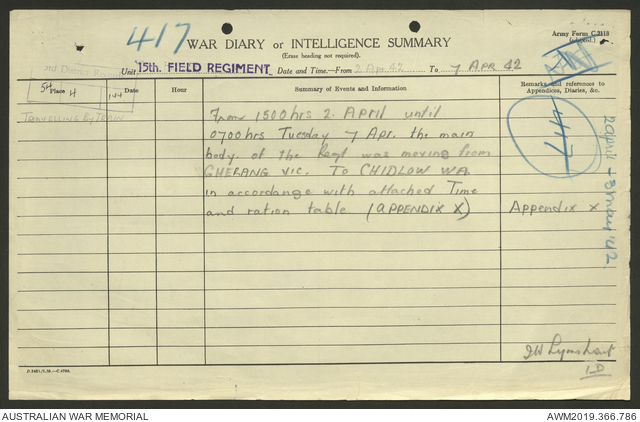 417
WAR DIARY or INTELLIGENCE SUMMARY
(Erase heading not required).
Army Form C.2118
(adapted.)
Unit 15th. FIELD REGIMENT Date and Time—From 2 Apr 42 To 7 APR 42
54
Place 4
Date
144
Hour
Summary of Events and Information
Remarks and references to
Appendices, Diaries, &c.
TRAVELLING BY TRAIN
From 1500 hrs 2. APRIL until
0700 hrs Tuesday 7 Apr. the main
body. of the Regt was moving from
GHERANG VIC. TO CHIDLOW WA.
in accordance with attached Time
and ration table (APPENDIX X)
Appendix X
417
2 April - 3 May '42
D.3481/5.39.—C.4704.
AUSTRALIAN WAR MEMORIAL
AWM2019.366.786